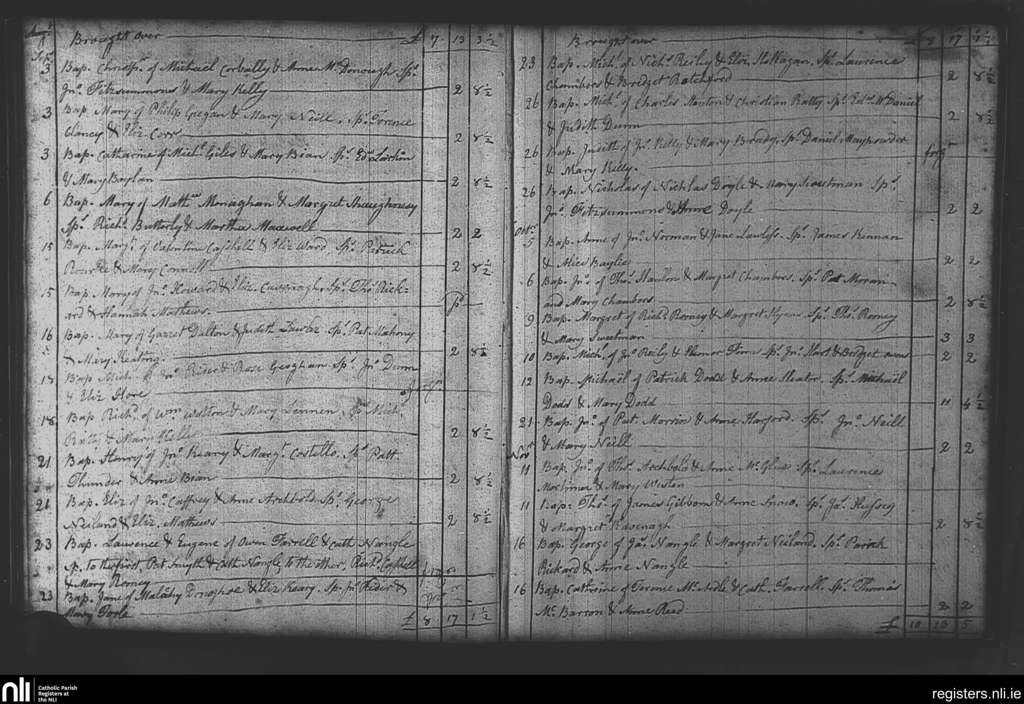 Brought over £ 7 13 3 ½
Sepr.
3 Bap. Christr. of Michael Corbally & Anne McDonough Sprs.
Jno. Fitzsimmons & Mary Kelly 2 8 ½
3 Bap. Mary of Philip Geegan & Mary Neill. Sprs. Terence
Clancy & Eliz. Corr 2 8 ½
3 Bap. Catharine of Michl. Giles & Mary Bian Sprs. Edd. Larkin
& Mary Boylan 2 8 ½
6 Bap. Mary of Matth. Monaghan & Margret
Sprs. Richd. Butterly & Martha Maxwell 2 2
15 Bap. Margt. of Valentine Cashell & Eliz Ward, Sprs. Patrick
Rourke & Mary Connell 2 8 ½
15 Bap. Mary of Jno. Howard & Eliz. Cavenagh, Sprs. Thos. Rick-
ard & Hannah Mathews.
16 Bap. Mary of Garret Dalton & Judith Sprs. Pat. Mahony
& Mary Keating. 2 8 ½
18 Bap. Mich. of Jno. Rider & Rose Geoghan Sprs. Jno. Dunn
& Eliz Hore
18 Bap. Richd. of Wm. Walton & Mary Lennen, Sprs. Mich.
Ratty & Mary Kelly 2 8 ½
21 Bap. Henry of Jno. Keary & Margt. Costello, Sprs. Patt.
Plunder & Anne Brian 2 8 ½
21 Bap. Eliz of Jno. Caffrey & Anne Archbold, Sprs. George
Neiland & Eliz. Mathews 2 8 ½
23 Bap. Lawrence & Eugene of Owen Farrell & Cath. Nangle
Sp. to the first, Pat Smyth & Cath Nangle, to the other, Richd. Cashell
& Mary Rorney
23 Bap. Jane of Malachy Donoghoe & Eliz Keary. Sp. Jno. Reder &
Mary Poole £ 8 17 1 ½
Brought over £ 8 17 1 ½
23 Bap. Mich. of Nichs. Reily & Eliz. Sp. Lawrence
Chambers & Bridget Batchford 2 8 ½
26 Bap. Mich. of Charles Manton & Christian Ratty Sprs. Edd. McDaniel
& Judith Dunn 2 8 ½
26 Bap. Judith of Jno. Kelly & Mary Brady, Sprs. Daniel Maypowder
& Mary Kelly.
26 Bap. Nicholas of Nicholas Doyle & Mary Sweetman Sprs.
Jno. Fitzsimmons & Anne Doyle 2 2
Octr.
5 Bap. Anne of Jno. Norman & Jane Lawless. Sprs. James Kennan
& Alice Baylie 2 2
6 Bap. Jno. of Thos. Hanlon & Margret Chambers. Sprs. Pat Moran
and Mary Chambers 2 8 ½
9 Bap. Margret of Richd. Rorney & Margret Sprs. Thos. Rorney
& Mary Sweetman 3 3
10 Bap. Mich. of Jno. Reily & Elenor Finn Sprs. Jno. Hart & Bridget 2 2
12 Bap. Michael of Patrick Dodd & Anne Heater. Sprs. Michael
Dodd & Mary Dodd 11 4 ½
21 Bap. Jno. of Pat. Morrin & Anne Harford. Sprs. Jno. Neill
& Mary Neill 2 2
Novr.
11 Bap. Jno. of Thos. Archbold & Anne Sprs. Lawrence
Mortimer & Mary Weston
11 Bap. Thos. of James Gibbons & Anne Snow. Sprs. Jas. Hussey
& Margret Kavenagh 2 8 ½
16 Bap. George of Jas. Nangle & Margret Neiland. Sprs. Patrick
Rickard & Anne Nangle
16 Bap. Catherine of Terence McArdle & Cath. Farrell. Sprs. Thomas
McBarron & Anne Reed 2 2
£ 10 13 5
nli
Catholic Parish
Registers at
the NLI
registers.nli.ie